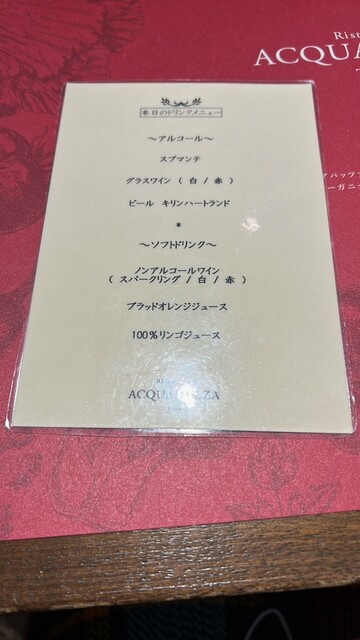 Rist
ACQUA
本日のドリンクメニュー
～アルコール～
スプマンテ
グラスワイン ( 白 / 赤 )
ビール キリンハートランド
*
～ソフトドリンク～
ノンアルコールワイン
( スパークリング / 白 / 赤 )
ブラッドオレンジジュース
100%リンゴジュース